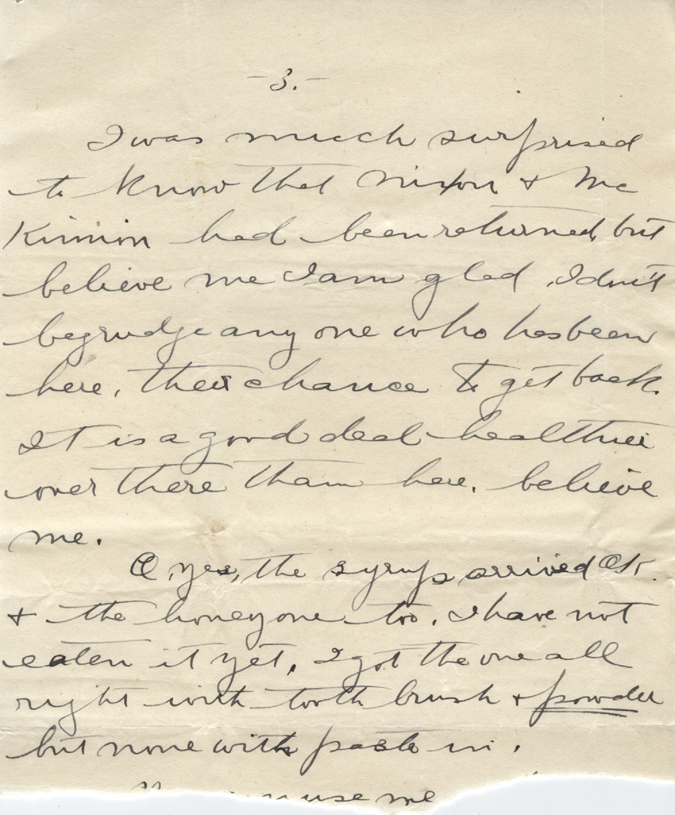 -3.-
I was much surprised
to know that Nixon + Mc
Kinnon had been returned but
believe me I am glad. I don't
begrudge any one who has been
here, their chance to get back.
It is a good deal healthier
over there than here, believe
me.
O, yes, the syrup arrived OK.
+ the honey one too. I have not
eaten it yet, I got the one all
right with tooth brush + powder
but none with paste in.
use me